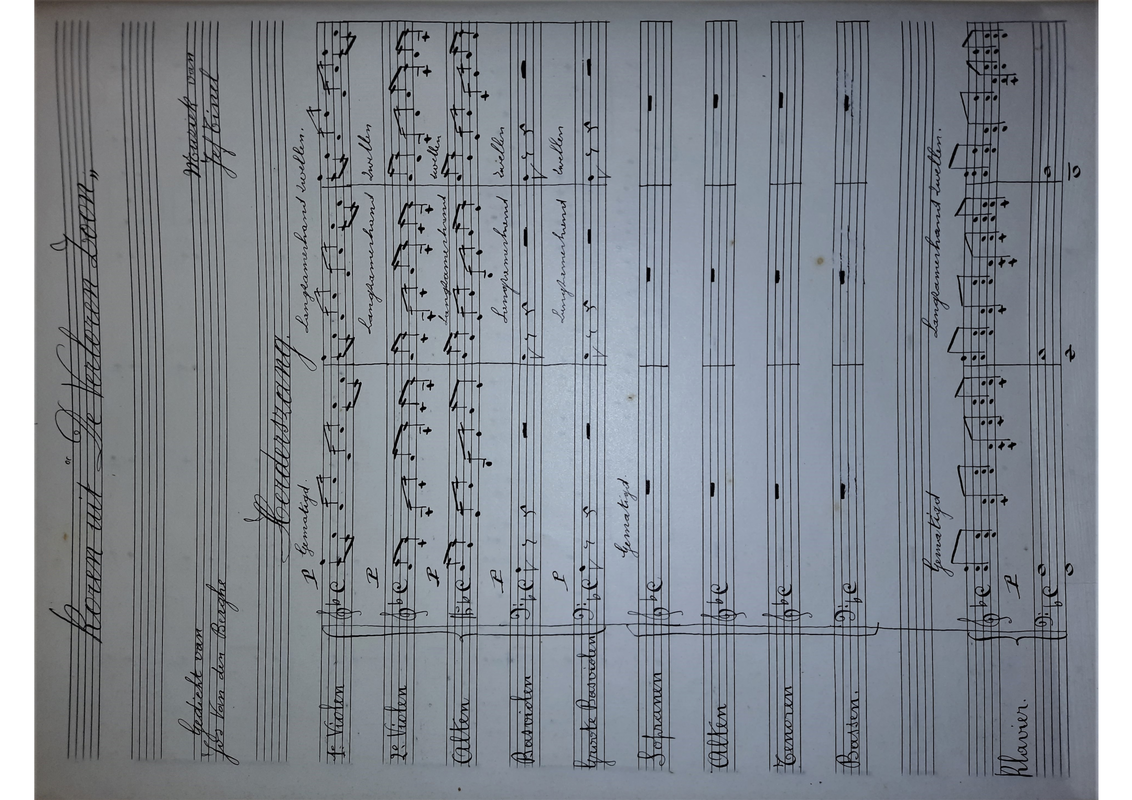 Koren uit "De Verloren Zoon„
Gedicht van
Jos Van den Berghe
Muziek van
Jef Tinel
Herderszang.
Gematigd. Langzamerhand zwellen.
P
1e Violen
Langzamerhand zwellen
P
2e Violen
Langzamerhand zwellen
P
Alten
Langzamerhand zwellen
P
Basviolen
Langzamerhand zwellen
P
Groote Basviolen
Gematigd
Sopranen
Alten
Tenoren
Bassen.
Gematigd Langzamerhand zwellen.
P
Klavier.